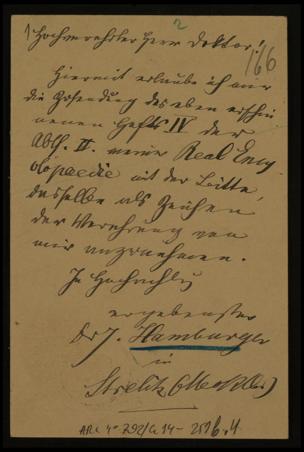 2
Hochverehrter Herr Doktor!
166
Hiermit erlaube ich mir
die Zusendung des eben erschie
nenen Hefts IV der
Abth. II. meiner Real Ency
clopaedie mit der Bitte,
dasselbe als Zeichen
der Verehrung von
mir anzunehmen.
In Hochachtg
ergebenster
Dr J. Hamburger
in
Strelitz (Mecklbg)
ARC 4° 792/G 14-